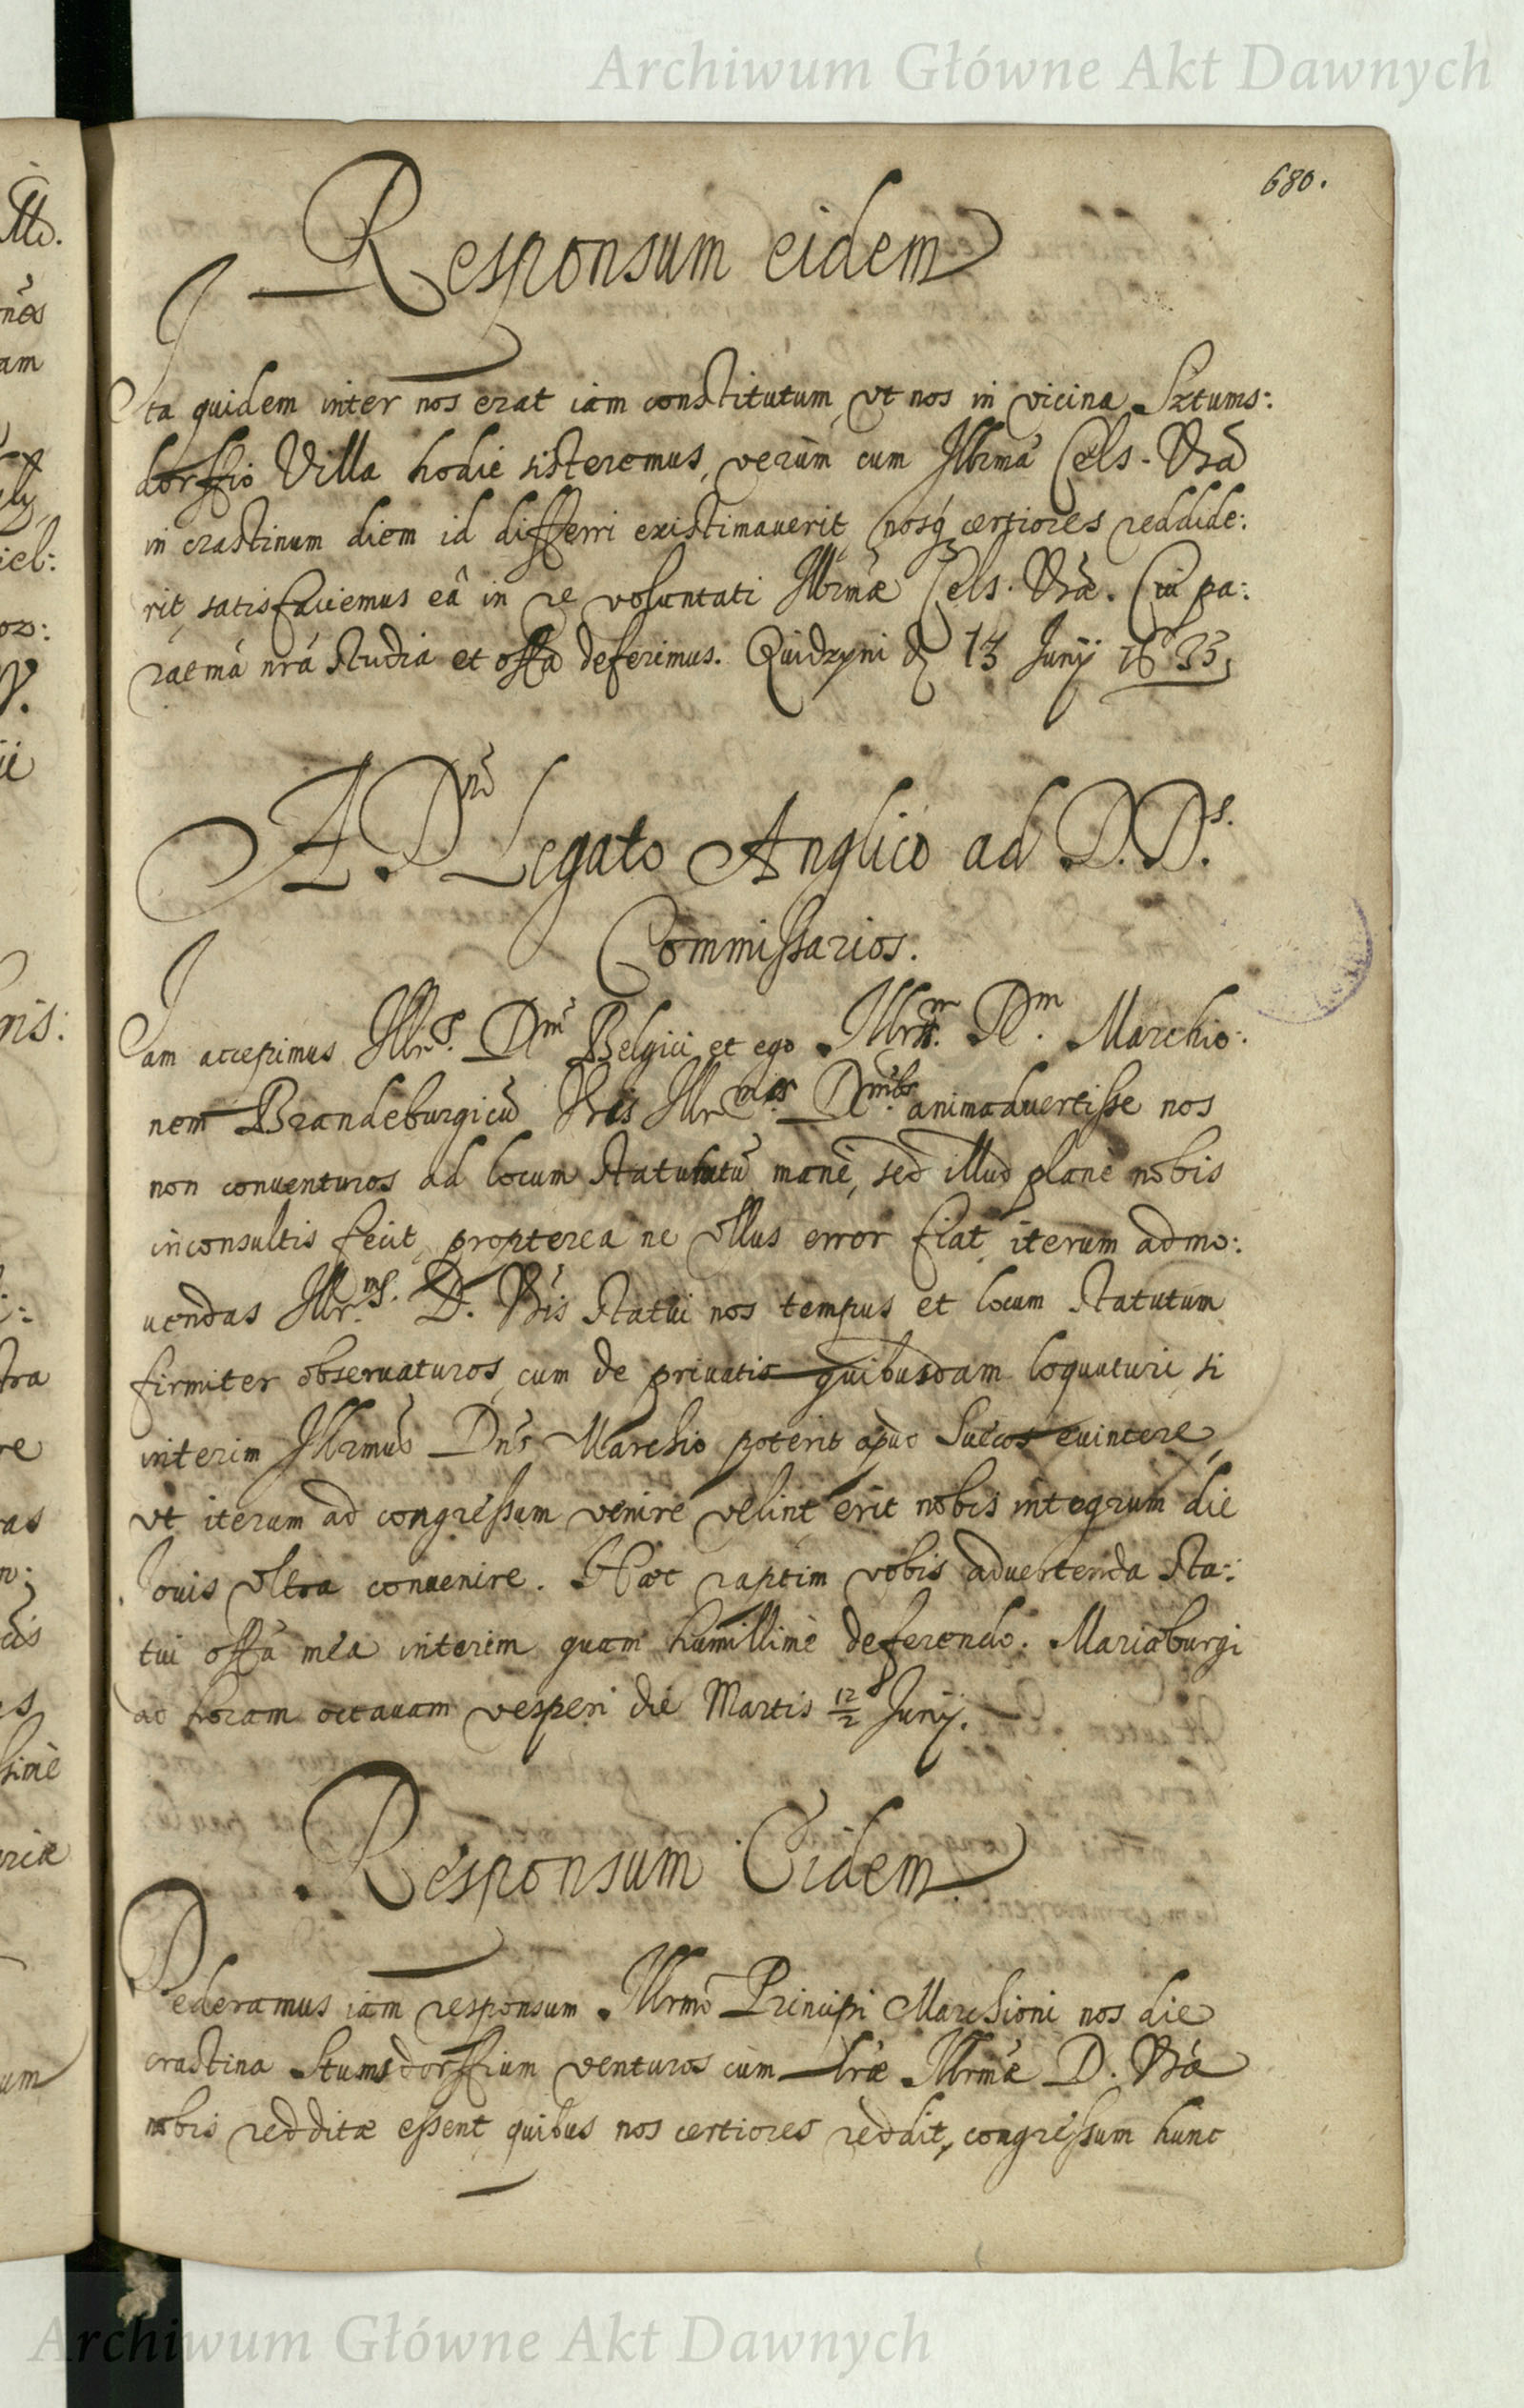 Archiwum Główne Akt Dawnych
680.
Responsum eidem
Ita quidem inter nos erat iam constitutum, vt nos in vicina Sztums:
dorffio Villa hodie sisteremus, verùm cum Illrmá Cels. Vrá
in crastinum diem id differri existimauerit, nosq́ certiores reddide:
rit, satisfaciemus eâ in re voluntati Illrmæ Cels. Vræ. Cui pa:
ratmá nrá studia et offa deferimus. Quidzyni d 13 Junij 1635,
A Dnō Legato Anglico ad D.Ds.
Commissarios.
Iam accepimus Illres. Dni Belgici et ego Illrm. Dm. Marchio:
nem Brandeburgicū Vris Illrmis Dnibs animaduertisse nos
non conuenturos ad locum statutū manè, sed illud planè nobis
inconsultis fecit, propterea ne vllus error fiat, iterum admo:
uendas Illrms. D. Vris statui nos tempus et locum statutum
firmiter obseruaturos, cum de priuatis quibusdam loquuturi, si
interim Illrmus Dns Marchio poterit apud Suecos euincere,
vt iterum ad congressum venire velint erit nobis integrum die
Iouis vltra conuenire. Hæc raptim vobis aduertenda sta:
tui offa mea interim quam humillimè deferendo. Mariæburgi
ad horam octauam vesperi die Martis 12/2 Junij.
Responsum Eidem
Dederamus iam responsum Illrmo Principi Marchioni nos die
crastina Stumsdorffium venturos cum lræ Illrmæ D. Vræ
nobis redditæ essent quibus nos certiores reddit, congressum hunc
Archiwum Główne Akt Dawnych